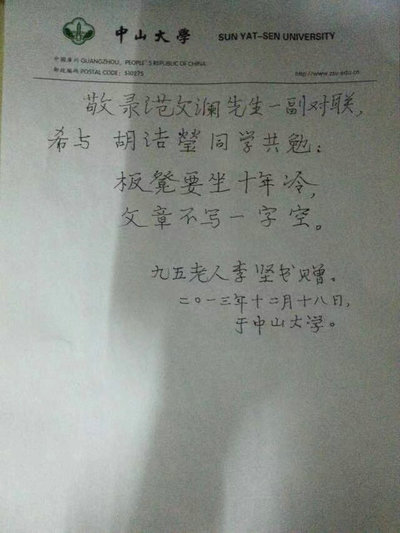 中山大学 SUN YAT-SEN UNIVERSITY
中国广州 GUANGZHOU, PEOPLE'S REPUBLIC OF CHINA
邮政编码 POSTAL CODE: 510275 http://www.zsu.edu.cn
敬录范文澜先生一副对联，
希与 胡洁莹同学共勉：
板凳要坐十年冷，
文章不写一字空。
九五老人李坚书赠。
二〇一三年十二月十八日，
于中山大学。